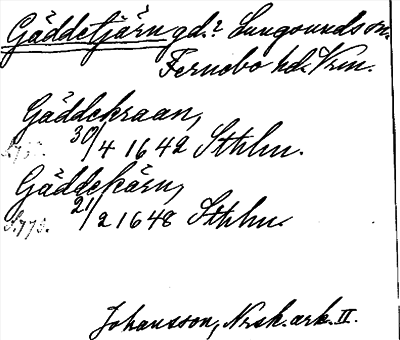 Gäddetjärn gd.? Lungsunds sn.
Fernebo hd. Vrm.
Gäddekraan,
30/4 1642 Sthlm.
Gäddekärn,
S.773. 21/2 1648 Sthlm.
Johansson, Nrsk. ark. II.